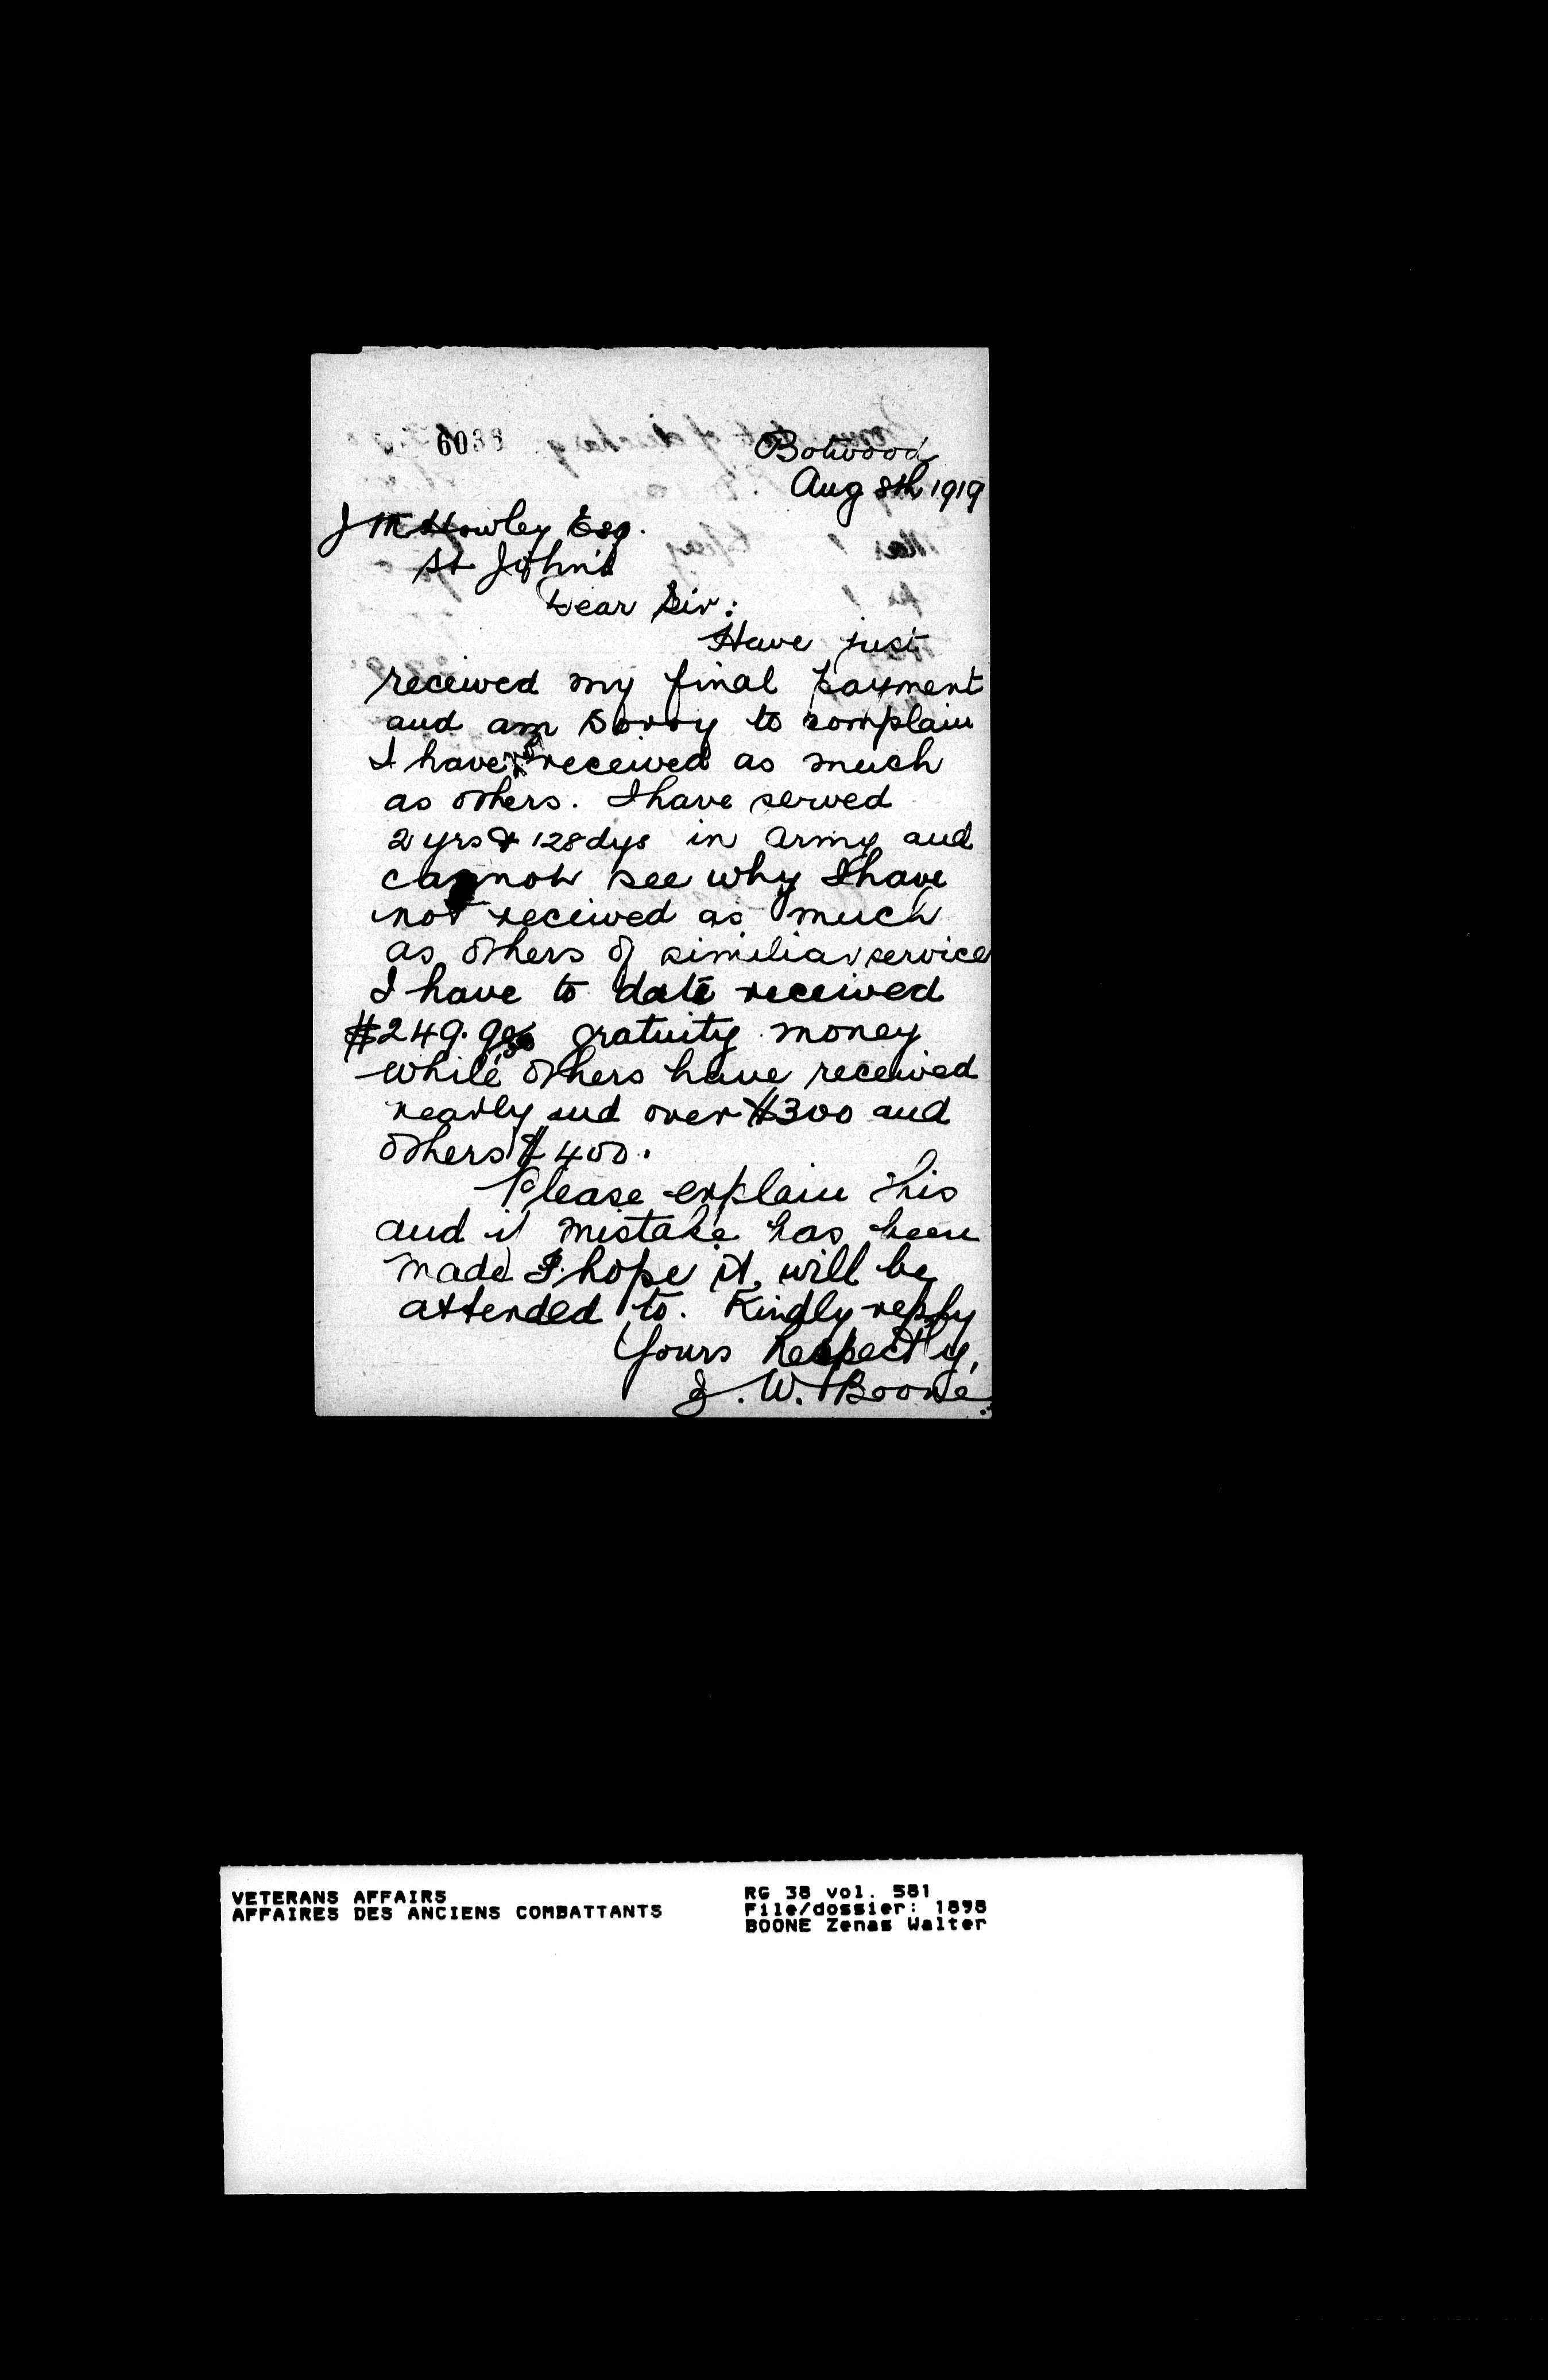 6033
Botwood
Aug 8th 1919
J M Howley Esq.
St John's
Dear Sir:
Have just
received my final payment
and am sorry to complain
I have not received as much
as others. I have served
2 yrs & 128 dys in Army and
cannot see why I have
not received as much
as others of similiar service
I have to date received
$249.90 gratuity money
while others have received
nearly and over $300 and
others $400.
Please explain this
and if mistake has been
made I hope it will be
attended to. Kindly reply
Yours Respect'y,
Z. W. Boone.
VETERANS AFFAIRS
AFFAIRES DES ANCIENS COMBATTANTS
RG 38 vol. 581
File/dossier: 1898
BOONE Zenas Walter